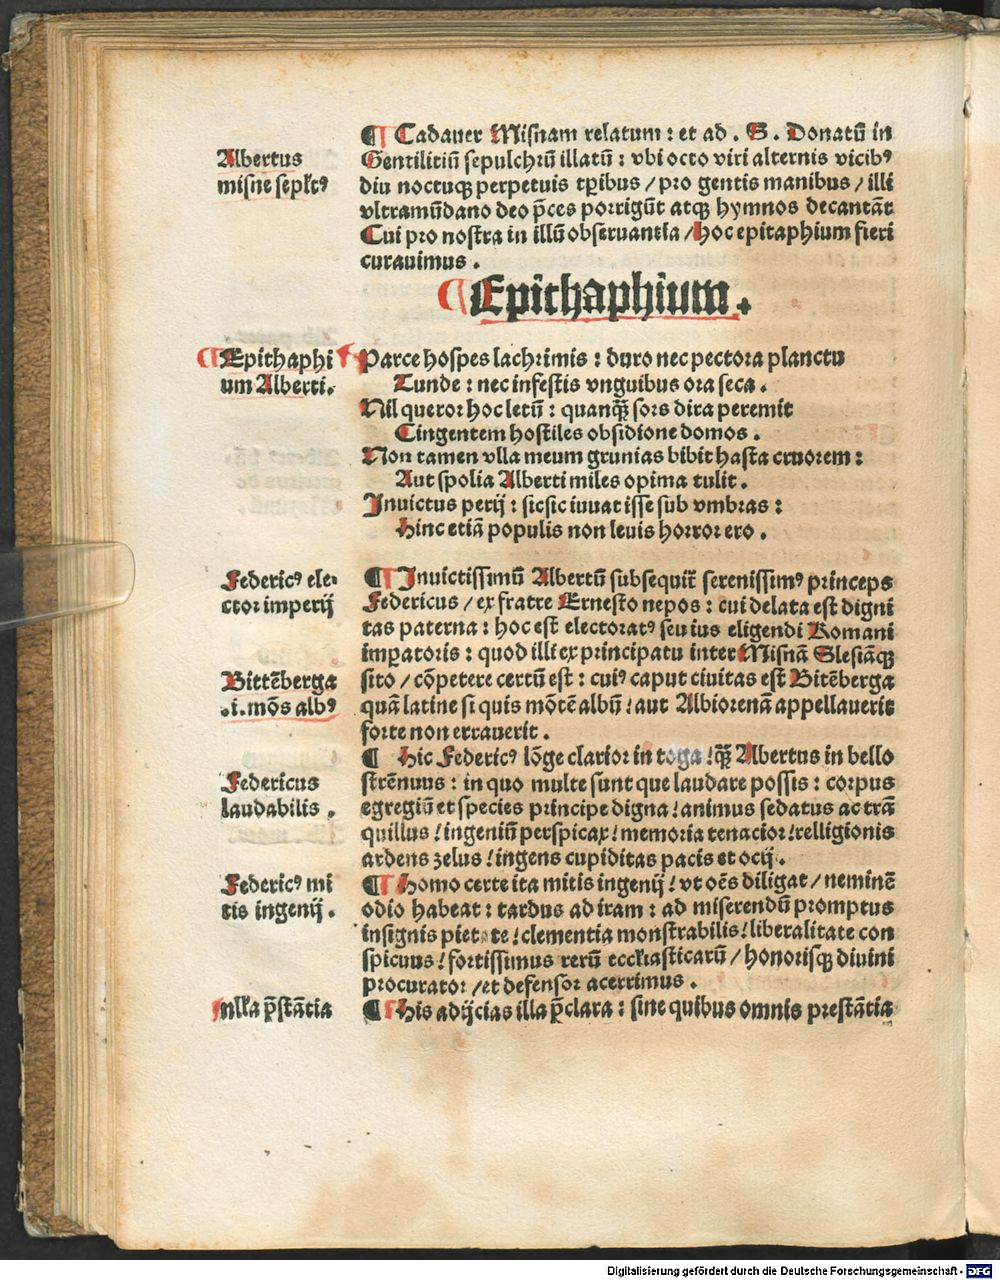 ¶ Cadauer Misnam relatum : et ad . S . Donatū in
Albertus
Gentilitiū sepulchrū illatū : vbi octo viri alternis vicibꝰ
misne sepl̄tꝰ
diu noctuqꝫ perpetuis tp̄ibus / pro gentis manibus / illi
vltramūdano deo p̄ces porrigūt atqꝫ hymnos decantāt
Cui pro nostra in illū obseruantia / hoc epitaphium fieri
curauimus .
¶ Epithaphium .
¶ Epithaphi
um Alberti .
Parce hospes lachrimis : duro nec pectora planctu
Tunde : nec infestis vnguibus ora seca .
Nil queror hoc letū : quanqꝫ̄ sors dira peremit
Cingentem hostiles obsidione domos .
Non tamen vlla meum grunias bibit hasta cruorem :
Aut spolia Alberti miles opima tulit .
Inuictus perij : sicsic iuuat isse sub vmbras :
Hinc etiā populis non leuis horror ero .
Federicꝰ ele-
ctor imperij
¶ Inuictissimū Albertū subsequit̄ serenissimꝰ princeps
Federicus / ex fratre Ernesto nepos : cui delata est digni
tas paterna : hoc est electoratꝰ seu ius eligendi Romani
imꝑatoris : quod illi ex principatu inter Misnā Slesiāqꝫ
Bittēberga
sito / cōpetere certū est : cuiꝰ caput ciuitas est Bitēberga
.i. mōs albꝰ
quā latine si quis mōtē albū / aut Albiorenā appellauerit
forte non errauerit .
¶ Hic Federicꝰ lōge clarior in toga / qꝫ̄ Albertus in bello
Federicus
laudabilis .
strēnuus : in quo multe sunt que laudare possis : corpus
egregiū et species principe digna / animus sedatus ac trā
quillus / ingeniū perspicax / memoria tenacior / relligionis
ardens zelus / ingens cupiditas pacis et ocij .
Federicꝰ mi
tis ingenij .
¶ Homo certe ita mitis ingenij / vt oēs diligat / neminē
odio habeat : tardus ad iram : ad miserendū promptus
insignis pietate / clementia monstrabilis / liberalitate con
spicuus / fortissimus rerū eccl̄iasticarū / honorisqꝫ diuini
procurator / et defensor acerrimus .
nll̄a p̄stātia
¶ His adijcias illa p̄clara : sine quibus omnis prestātia
Digitalisierung gefördert durch die Deutsche Forschungsgemeinschaft - DFG